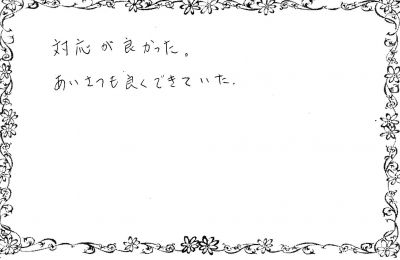 対応が良かった。
あいさつも良くできていた.